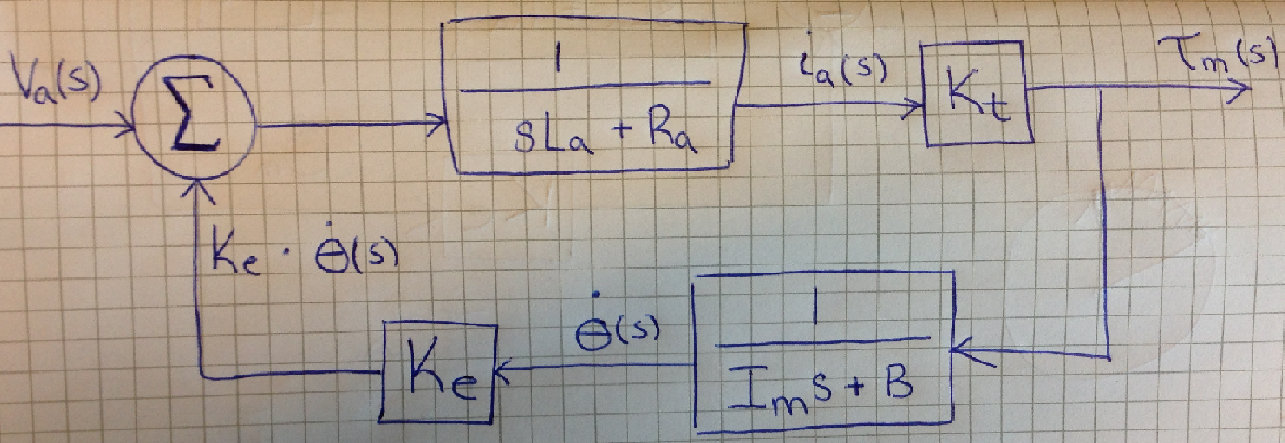 Vₐ(s)
Σ
1
sLₐ + Rₐ
iₐ(s)
Kₜ
τₘ(s)
Kₑ · θ̇(s)
Kₑ
θ̇(s)
1
Iₘs + B